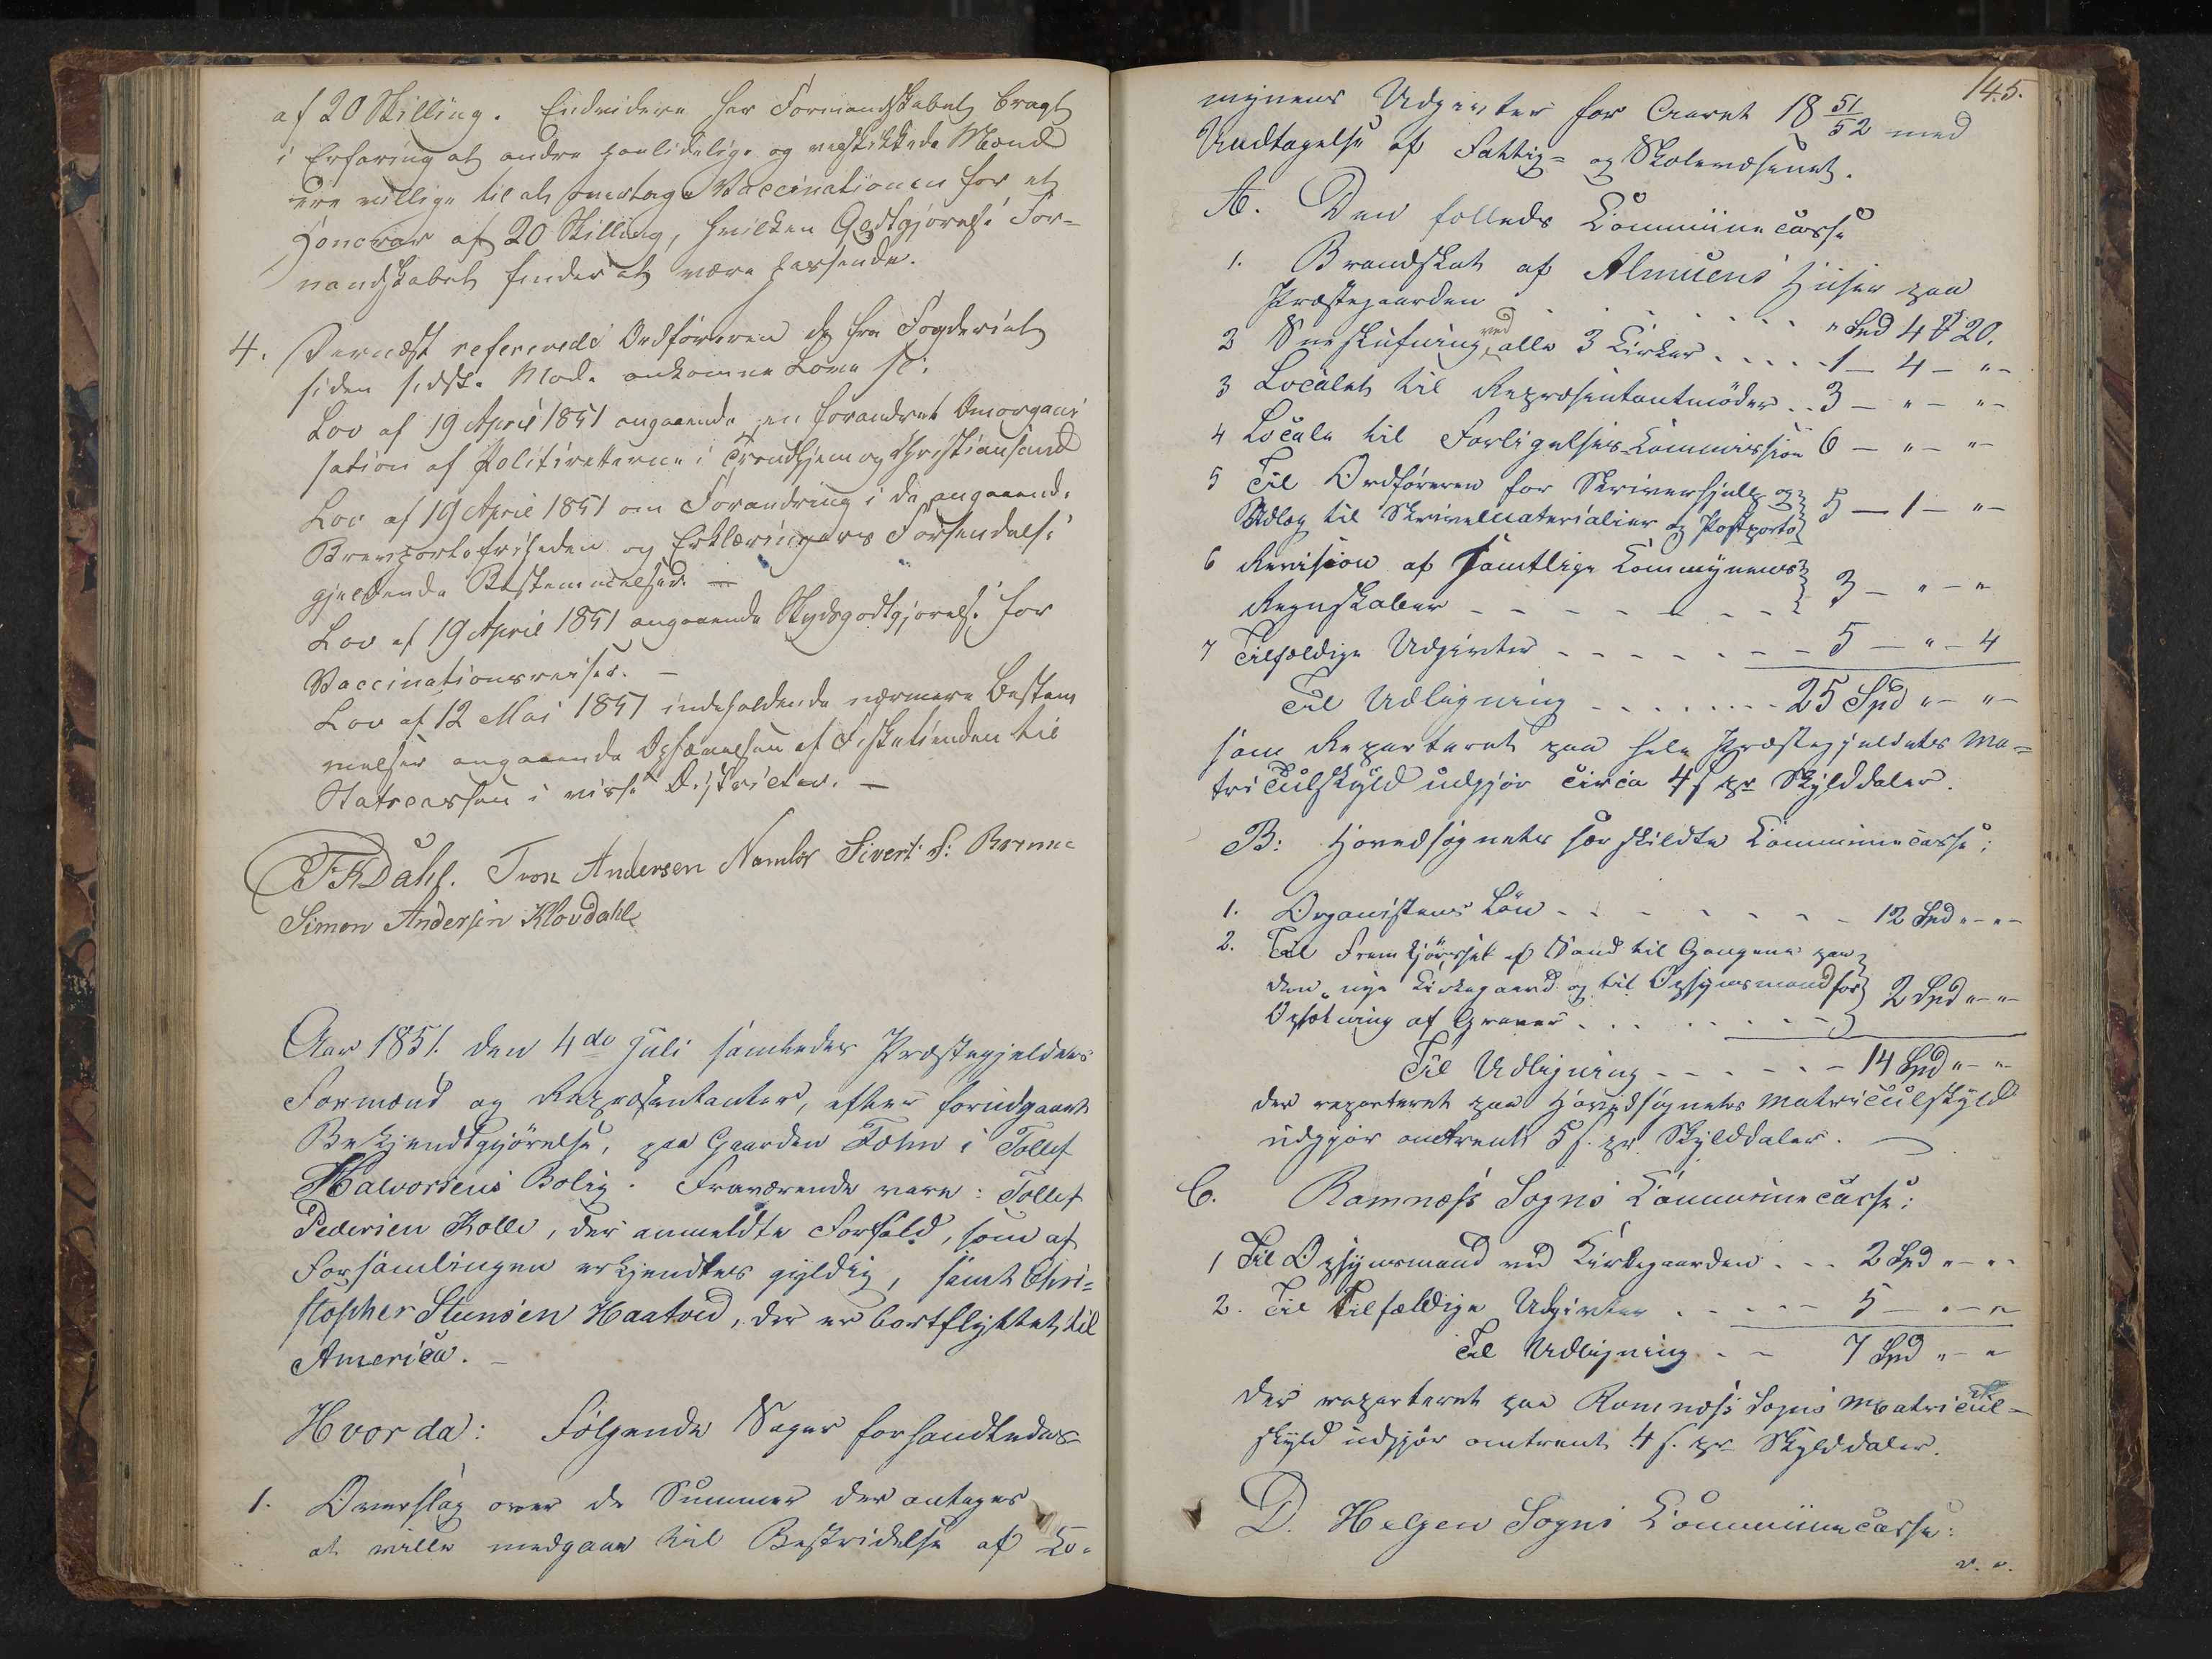 af 20 Skilling. Endvidere har Formandskabet bragt
i Erfaring at andre paalidelige og velskikkede Mænd
ere villige til at foretage Vaccinationen for et
Honorar af 20 Skilling, hvilken Godtgjørelse For-
mandskabet finder at være passende.
4. Dernæst refererede Ordføreren de fra Fogderiet
siden sidste Møde ankomne Love
Lov af 19 April 1851 angaaende en forandret Omorgani
sation af Politiretterne i Trondhjem og Christiansand
Lov af 19 April 1851 om Forandring i de angaaende
Brevportofriheden og Erklæringers Forsendelse
gjeldende Bestemmelser. —
Lov af 19 April 1851 angaaende Skydsgodtgjørelse for
Vaccinationsreiser. —
Lov af 12 Mai 1851 indeholdende nærmere Bestem
melser angaaende Ophævelsen af Fisketienden til
Statscassen i visse Districter. —
FKDahl. Tron Andersen Namløs Sivert S:
Simon Andersen Klovdahl
Aar 1851. den 4de Juli samledes Præstegjeldets
Formænd og Repræsentanter, efter forudgaaet
Bekjendtgjörelse, paa Gaarden Fæhn i Tollef
Halvorsens Bolig. Fraværende vare: Tollef
Pedersen Kolle, der anmeldte Forfald, som af
Forsamlingen erkjendtes gyldig, samt Chri-
stopher Stensen Haatved, der er bortflyttet til
America. —
Hvorda: Følgende Sager forhandledes
1. Overslag over de Summer der antages
at ville medgaae til Bestridelse af Co-
145.
mynens Udgivter for Aaret 18 51/52 med
Undtagelse af Fattig- og Skolevæsenet.
A. Den fælleds Communecasse
1. Brandskat af Almuens Huser paa
Præstegaarden . . . . . . . . . " Spd 4 ß 20.
2 Sneskufning ved alle 3 Kirker . . . . . 1 — 4 — " —
3 Localet til Repræsentantmöder . . 3 — " — " —
4 Locale til Forligelses-Commission 6 — " — " —
5 Til Ordføreren for Skriverhjelp og
Udlæg til Skrivematerialier og Postporto 5 — 1 — " —
6 Revision af samtlige Commynens
Regnskaber - - - - - - - - 3 — " — "
7 Tilfældige Udgivter - - - - - - - 5 — " — 4
Til Udligning - - - - - - - - 25 Spd " — " —
som reparteret paa hele Præstegjeldets Ma-
triculskyld udgjør circa 4 s pr Skylddaler.
B: Hovedsognets særskildte Communecasse:
1. Organistens Løn - - - - - - - - 12 Spd " — " —
2. Til Fremkjörsel af Sand til Gangene paa
den nye Kirkegaard og til Opsynsmand for
Opkastning af Graver . . . . . . . . 2 Spd " — " —
Til Udligning - - - - - - 14 Spd " — " —
der reparteret paa Hovedsognets Matriculskyld
udgjør omtrent 5 s. pr Skylddaler. —
C. Ramnæs Sogns Communecasse:
1 Til Opsynsmand ved Kirkegaarden . . . 2 Spd " — " .
2. Til Tilfældige Udgivter . . . . . . 5 — " — "
Til Udligning - - 7 Spd " — "
der reparteret paa Ramnæs Sogns Matricul-
skyld udgjør omtrent 4 s. pr Skylddaler.
D. Helgen Sogns Communecasse:
v. v.